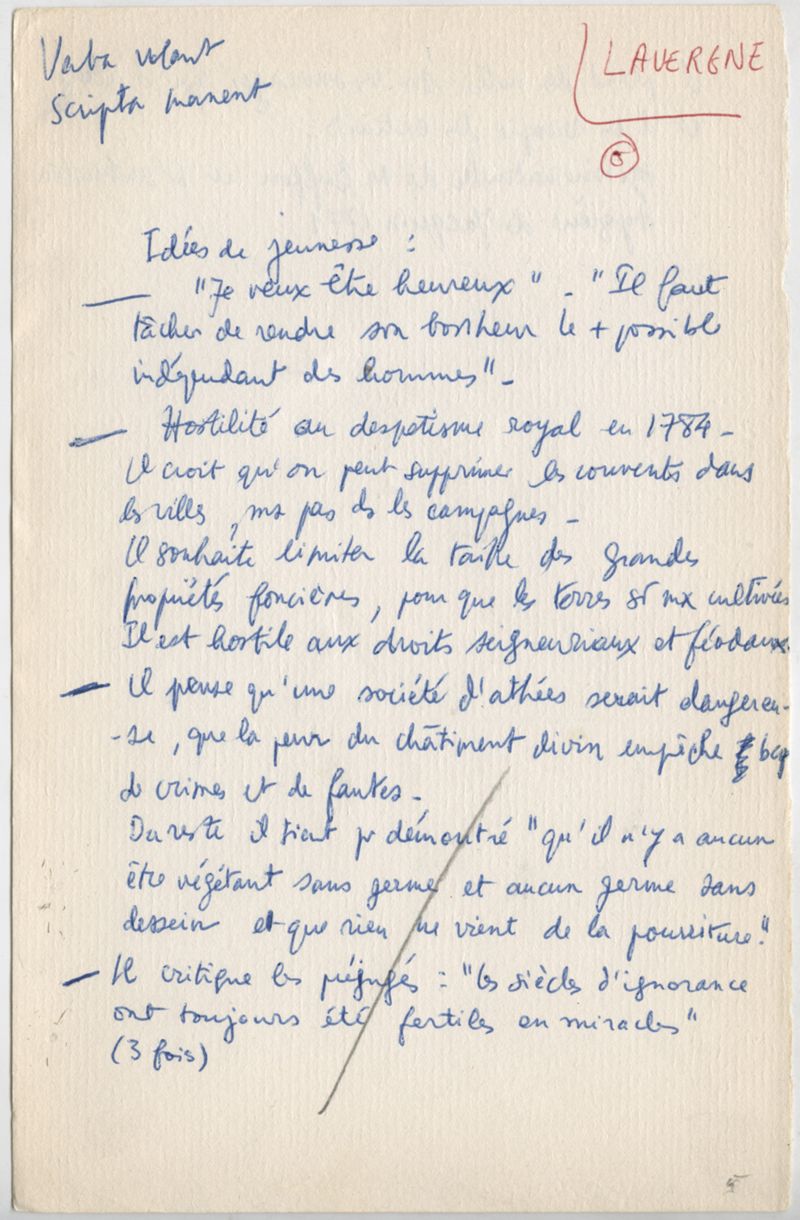 Verba volant
Scripta manent
LAVERGNE
5
Idées de jeunesse :
— "Je veux être heureux" - "Il faut
tâcher de rendre son bonheur le + possible
indépendant des hommes" -
— Hostilité au despotisme royal en 1784 -
Il croit qu'on peut supprimer les couvents dans
les villes, ms pas ds les campagnes -
Il souhaite limiter la taille des grandes
propriétés foncières, pour que les terres st mx cultivées
Il est hostile aux droits seigneuriaux et féodaux.
— Il pense qu'une société d'athées serait dangereu-
-se, que la peur du châtiment divin empêche bcp
de crimes et de fautes -
Du reste il tient pr démontré "qu'il n'y a aucun
être végétant sans germe et aucun germe sans
dessein et que rien ne vient de la pourriture."
— Il critique les préjugés : "les siècles d'ignorance
ont toujours été fertiles en miracles"
(3 fois)
5